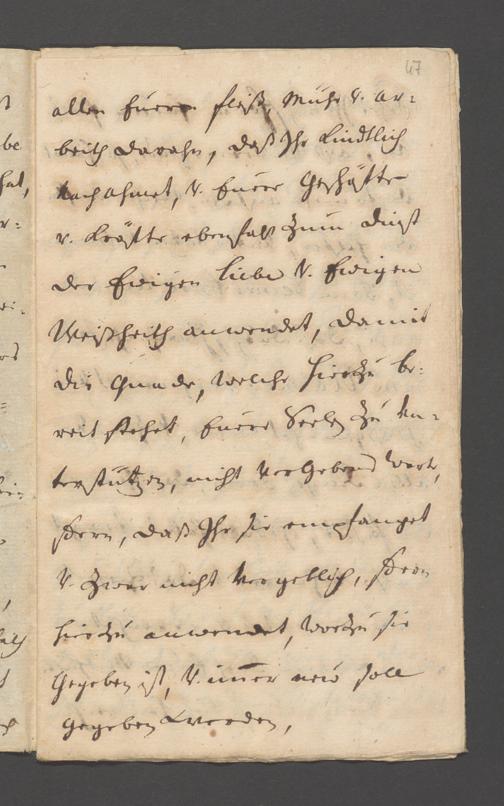 47
allen Euren fleiß, Mühe v. ar=
beith darahn, daß Ihr kindtlich
nachahmet, v. Eure Geschäffte
v. kräffte ebenfalß zum dinst
der Ewigen liebe v. Ewigen
Weißheith anwendet, damit
die Gnade, welche hierzu be=
reit stehet, Eure Seelen zu un=
terstützen, nicht vergebens warte,
sondern, daß Ihr sie empfanget
v. zwar nicht vergeblich, sondern
hierzu anwendet, worzu sie
gegeben ist, v. immer neü soll
gegeben werden,